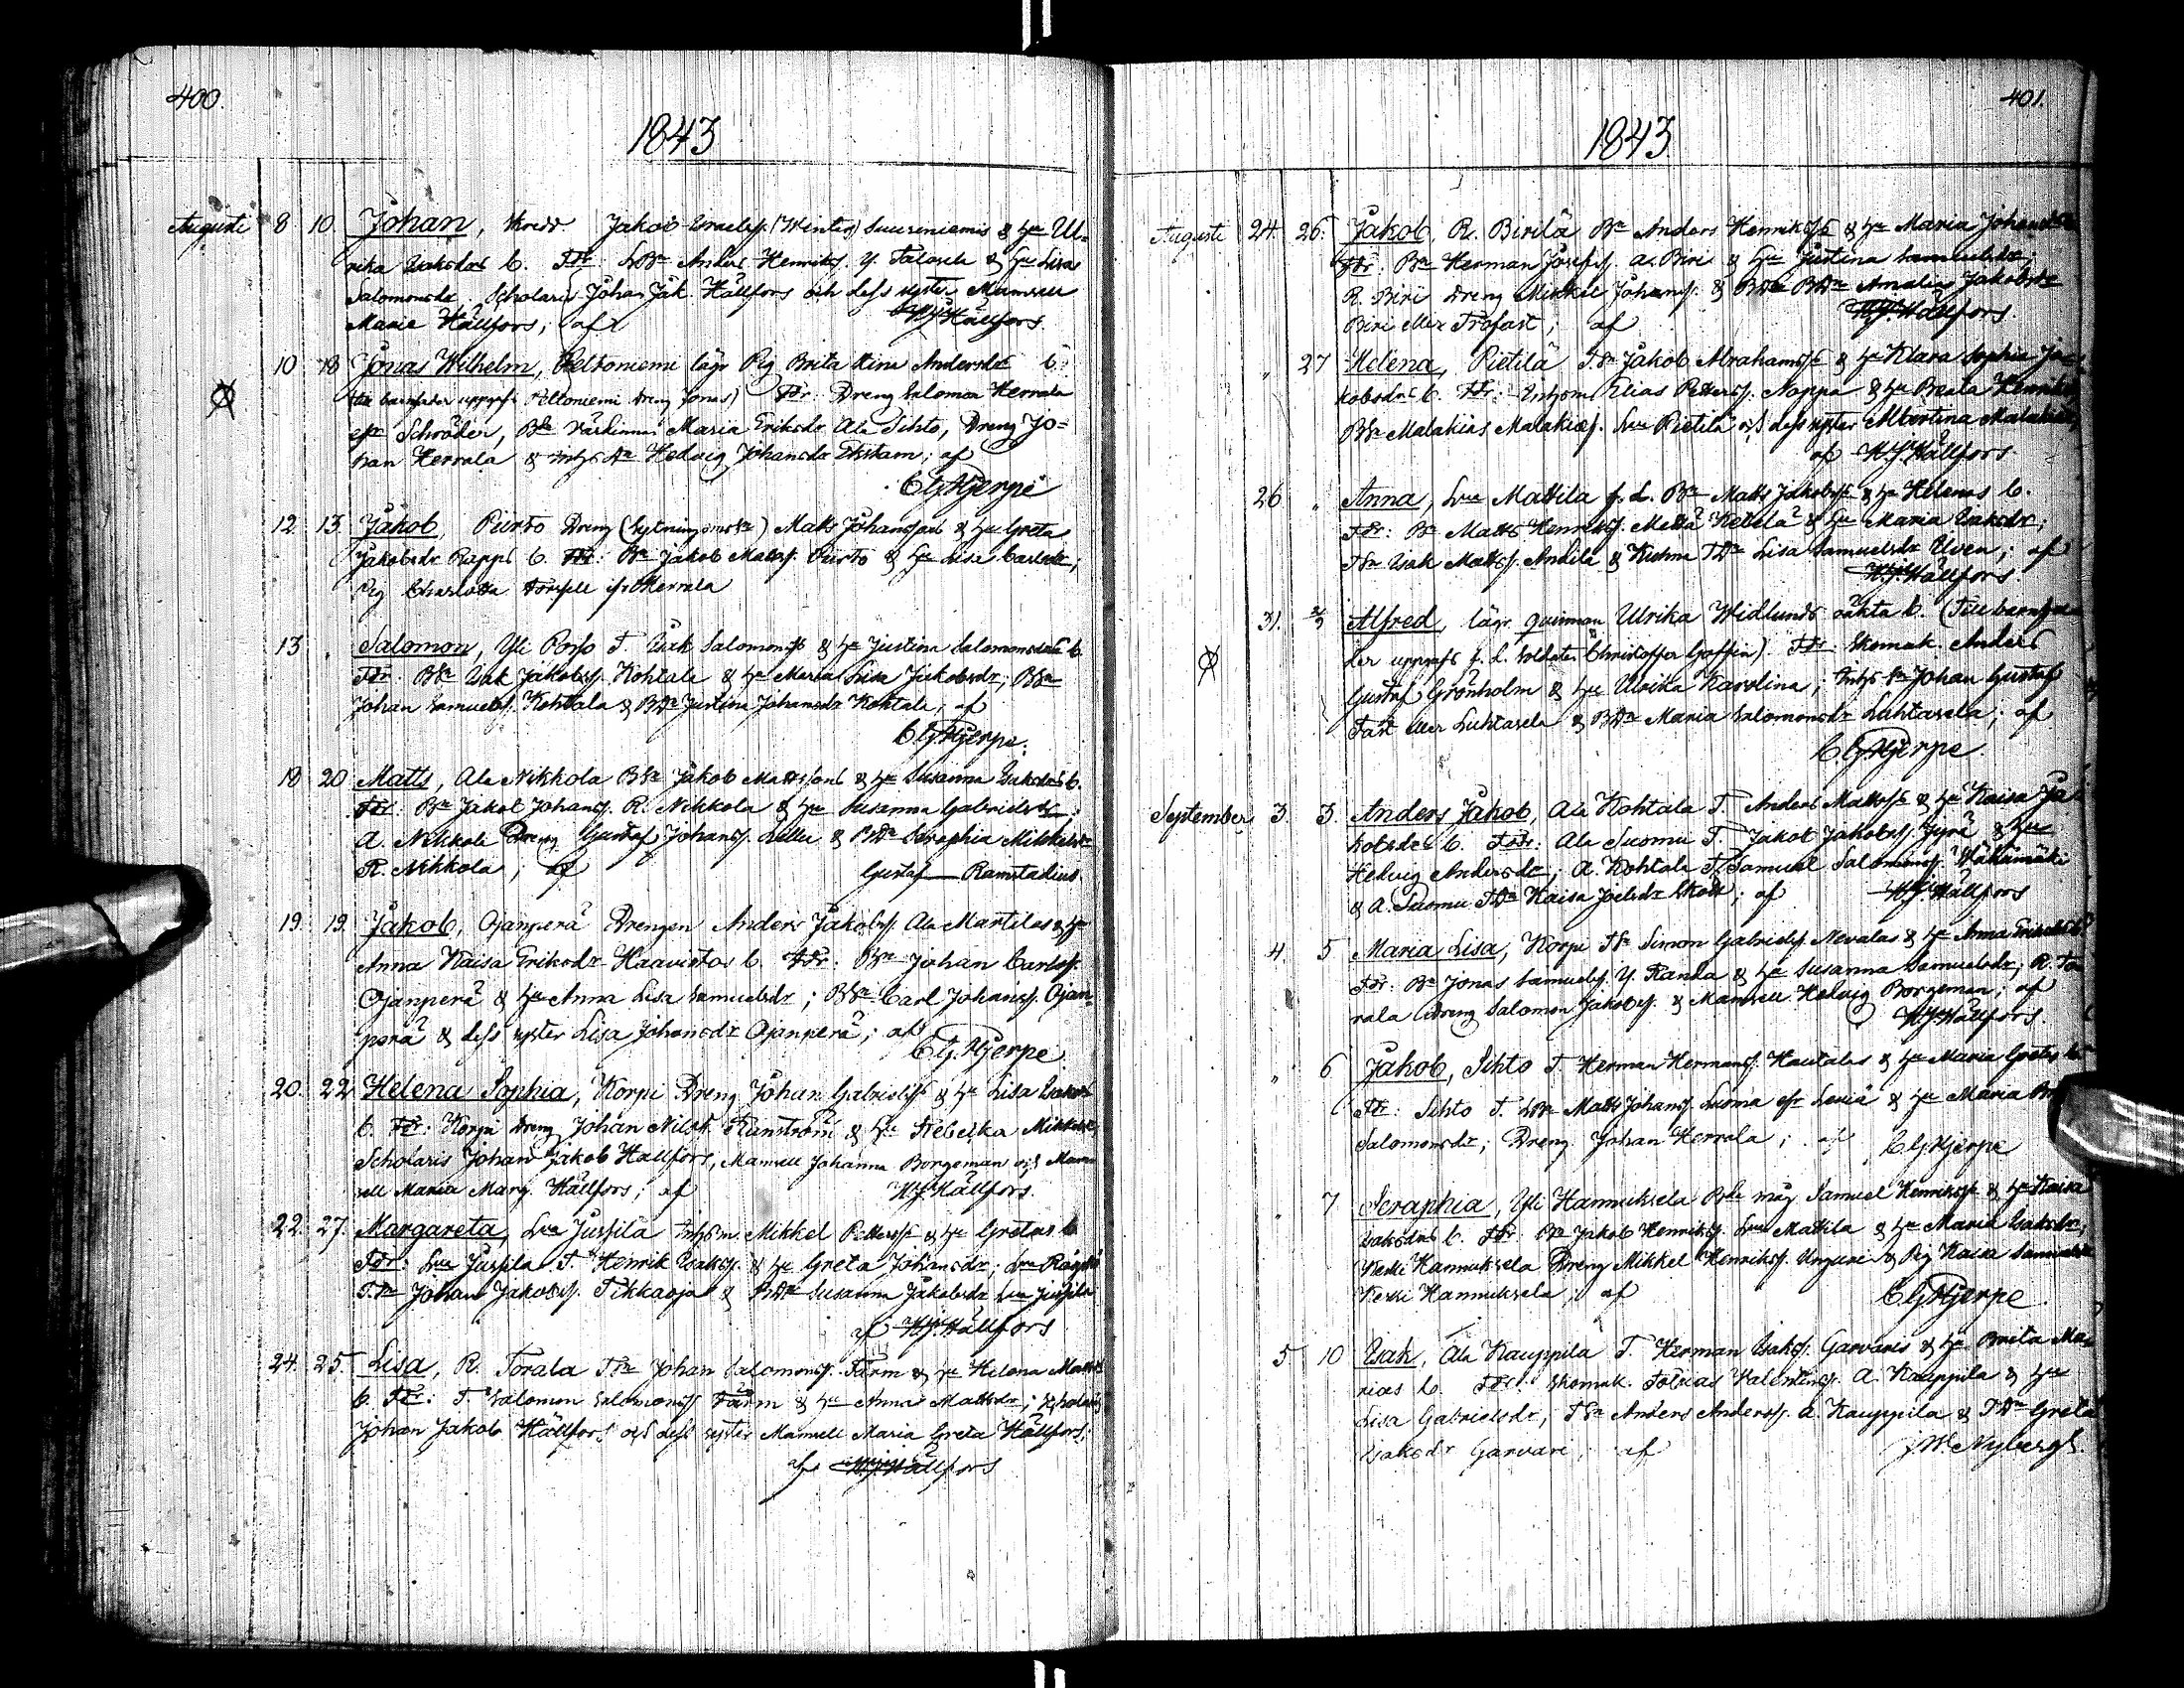 400.
1843
Augusti 8 10. Johan, Jakob Israelss. (Winter) Suuriniemis & Hu Ul-
rika Isaksdrs b. Fdr: Anders Henrikss. Y. Talasela & Hu Lisa
Salomonsdr. Scholaris Johan Jak. Hällfors och dess syster Mamsell
Maria Hällfors; af Hällfors
10 18 Jonas Wilhelm, Peltoniemi lägr Pig Brita Stina Andersdrs b.
(till barnfader uppgifs Peltoniemi Dreng Jonas) Fdr: Dreng Salomon Herrala
Schröder, Värdinnan Maria Eriksdr Ala Sihto, Dreng Jo-
han Herrala & Hedvig Johansdr Ekstam; af
C G Hjerpe
12. 13. Jakob, Purto Dreng Matts Johanssons & Hu Greta
Jakobsdr Rapps b. Fdr: Jakob Matss. Purto & Hu Lisa Carlsdr;
Pig Charlotta Herrala
13 „ Salomon, Yli Porso T. Isak Salomonss & Hu Justina Salomonsdrs b.
Fdr: Isak Jakobss. Kohtala & Hu Maria Lisa Jakobsdr;
Johan Samuelss. Kohtala & Justina Johansdr Kohtala; af
C G Hjerpe.
18 20 Matts, Ala Nikkola Jakob Mattssons & Hu Susanna Isaksdrs b.
Fdr: Jakob Johanss. R. Nikkola & Hu Susanna Gabrielsdr;
A. Nikkola Dreng Gustaf Johanss. & Seraphia Mikkelsdr
R. Nikkola; af Gustaf Ramstadius
19. 19. Jakob, Ojanperä Drengen Anders Jakobss. Ala Martilas & Hu
Anna Kaisa Eriksdr Haavistos b. Fdr: Johan Carlss.
Ojanperä & Hu Anna Lisa Samuelsdr; Carl Johanss. Ojan-
perä & dess syster Lisa Johansdr Ojanperä; af
C G. Hjerpe
20. 22. Helena Sophia, Korpi Dreng Johan Gabrielss & Hu Lisa Isaksdrs
b. Fdr: Korpi Dreng Johan Nilss. Ranström & Hu Rebecka Mikkelsdr,
Scholaris Johan Jakob Hällfors, Mamsell Johanna Borgeman och Mam-
sell Maria Marg. Hällfors; af Hällfors.
22. 27. Margareta, Lua Juspila Inhysm. Mikkel Petterss & Hu Gretas b
Fdr: Lua Juspila T. Henrik Isakss. & Hu Greta Johansdr;
Johan Jakobss. Tikkaoja & Susanna Jakobsdr Lua Juspila
af Hällfors
24. 25. Lisa, R. Torala Johan Salomonss. Farm & Hu Helena Mattsdr
b. Fdr: T. Salomon Salomonss Farm & Hu Anna Mattsdr; Scholaris
Johan Jakob Hällfors och dess syster Mamsell Maria Greta Hällfors;
af Hällfors
401.
1843.
Augusti 24. 26. Jakob, R. Birilä Anders Henrikss & Hu Maria Johansdrs
Fdr: Herman Josefss. A. Biri & Hu Justina Samuelsdr;
R. Biri Dreng Mikkel Johanss. & Amalia Jakobsdr
Biri eller Trofast; af Hällfors
„ 27 Helena, Pietilä Jakob Abrahamss & Hu Klara Sophia Ja-
kobsdrs b. Fdr: Inhysm Elias Petterss. Noppa & Hu Beata Henriksdr,
Malakias Malakiass. Lua Pietilä och dess syster Albertina Malakiasdr,
af Hällfors.
26 „ Anna, Lua Mattila f. d. Matts Jakobss & Hu Helenas b.
Fdr: Matts Henrikss. Ketelä & Hu Maria Isaksdr;
Isak Mattss. Anttila & Lisa Samuelsdr Uven; af
Hällfors.
31. 2/9 Alfred, lägr. quinnan Ulrika Widlunds oäkta b. (Till barnfa-
der uppgifs f. d. Soldaten Christoffer Goffin). Fdr: Skomak. Anders
Gustaf Grönholm & Hu Ulrika Karolina; Johan Gustaf
Fast eller Luhtasela & Maria Salomonsdr Luhtasela; af
C G Hjerpe
September 3. 3. Anders Jakob, Ala Kohtala T. Anders Mattss & Hu Kaisa Ja-
kobsdrs b. Fdr: Ala Suomu T. Jakob Jakobss. Jyrä & Hu
Hedvig Andersdr; A. Kohtala Samuel Salomonss. Wähämäki
& A. Suomu Kaisa Joelsdr; af Hällfors
4. 5 Maria Lisa, Korpi Simon Gabrielss. Nevalas & Hu Anna Eriksdrs b
Fdr: Jonas Samuelss. Y. Ranta & Hu Susanna Samuelsdr; R. To-
rala Dreng Salomon Jakobss. & Mamsell Hedvig Borgeman; af
Hällfors.
„ 6 Jakob, Sihto T. Herman Hermanss. Hautalas & Hu Maria Gretas b
Fdr: Sihto T. Matts Johanss. Luoma & Hu Maria
Salomonsdr; Dreng Johan Herrala; af C G Hjerpe
„ 7 Seraphia, Yli Hannuksela måg Samuel Henrikss & Hu Kaisa
Isaksdrs b. Fdr: Jakob Henrikss. Lua Mattila & Hu Maria Isaksdr,
Keski Hannuksela Dreng Mikkel Henrikss. & Pig Kaisa Samuelsdr
Keski Hannuksela; af C G Hjerpe.
5 10 Isak, Ala Kauppila T. Herman Isakss. Garvaris & Hu Brita Ma-
rias b. Fdr: Skomak. Tobias Valentinss. A. Kauppila & Hu
Lisa Gabrielsdr, Anders Anderss. A. Kauppila & Greta
Isaksdr Garvare; af J. W. Nybergh.